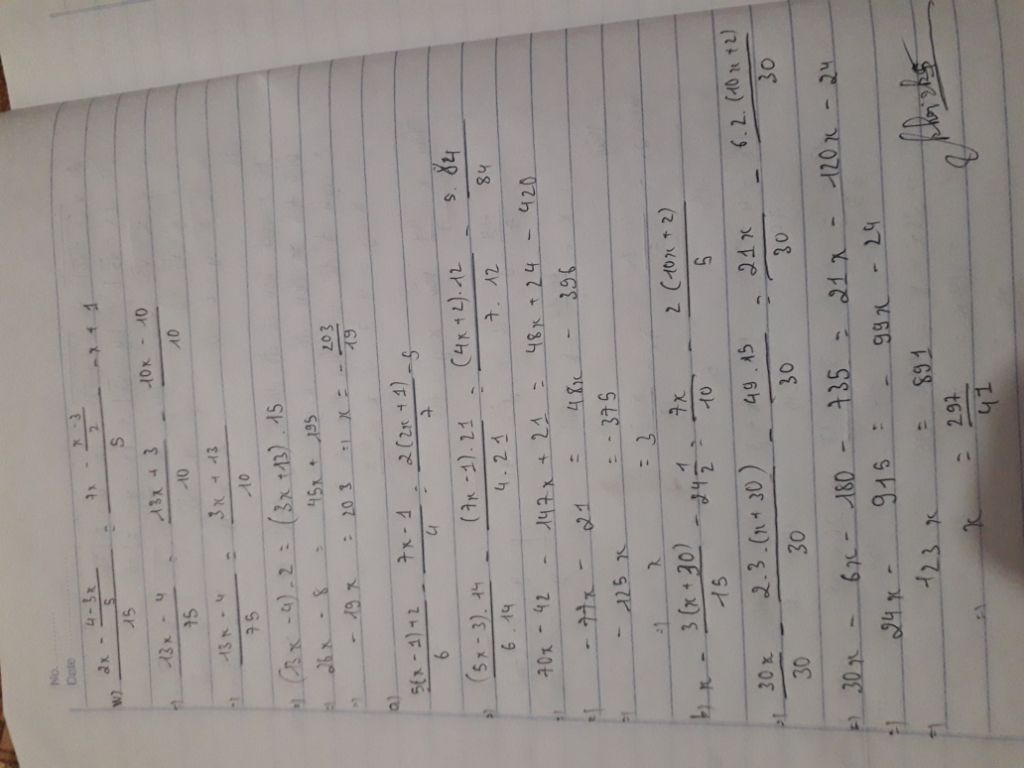 No.
Date
w) (2x - (4 - 3x)/5)/15 = (7x - (x - 3)/2)/5 - x + 1
=) (13x - 4)/75 = (13x + 3)/10 - (10x - 10)/10
=) (13x - 4)/75 = (3x + 13)/10
=) (13x - 4).2 = (3x + 13).15
=) 26x - 8 = 45x + 195
=) - 19x = 203 =) x = - 203/19
a) (5(x - 1) + 2)/6 - (7x - 1)/4 = 2(2x + 1)/7 - 5
=) (5x - 3).14/6.14 - (7x - 1).21/4.21 = (4x + 2).12/7.12 - 5.84/84
=) 70x - 42 - 147x + 21 = 48x + 24 - 420
=) - 77x - 21 = 48x - 396
=) - 125x = - 375
=) x = 3
b) x - 3(x + 30)/15 - 24 1/2 = 7x/10 - 2(10x + 2)/5
=) 30x/30 - 2.3.(x + 30)/30 - 49.15/30 = 21x/30 - 6.2.(10x + 2)/30
=) 30x - 6x - 180 - 735 = 21x - 120x - 24
=) 24x - 915 = - 99x - 24
=) 123x = 891
=) x = 297/41